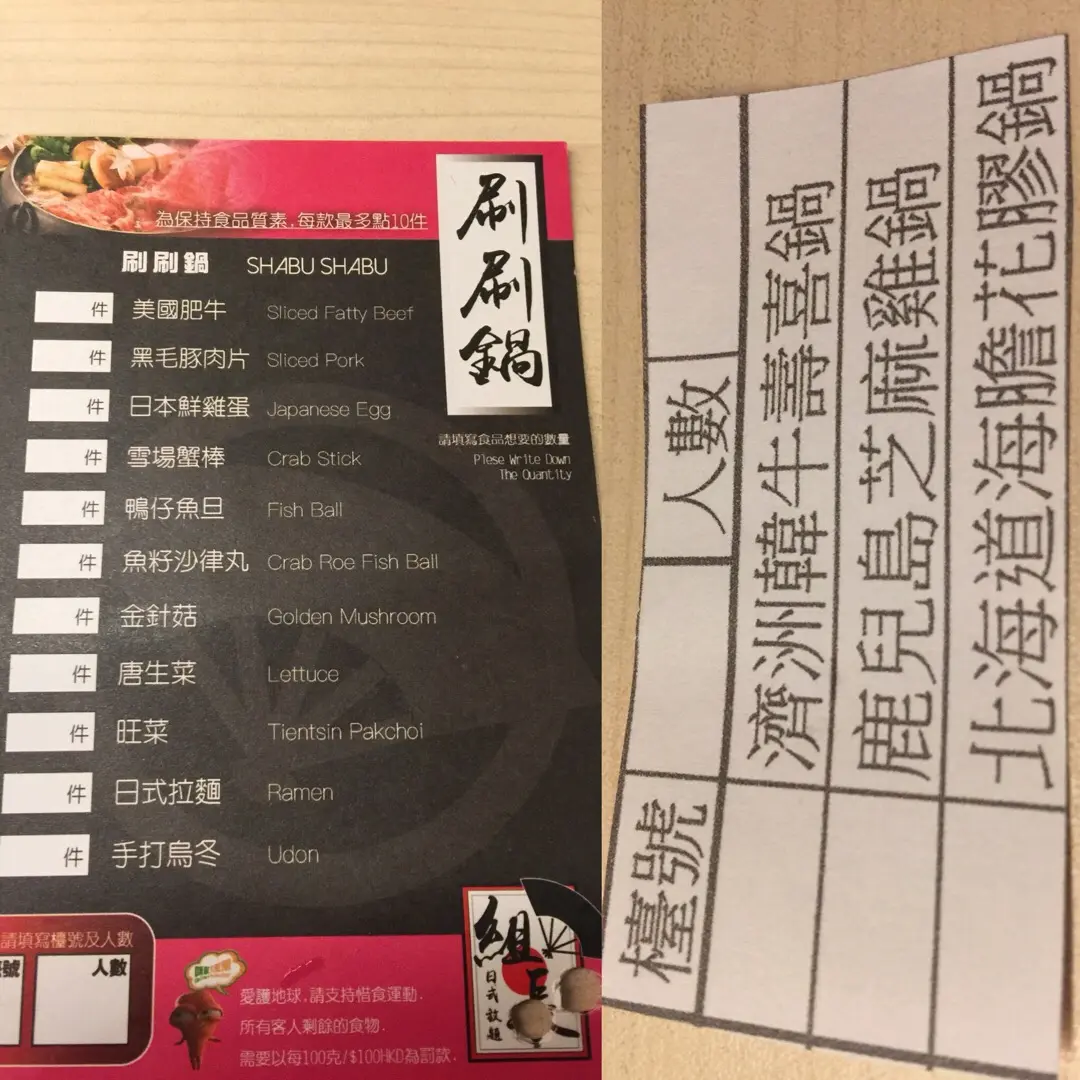 為保持食品質素,每款最多點10件
刷刷鍋
刷刷鍋 SHABU SHABU
件 美國肥牛 Sliced Fatty Beef
件 黑毛豚肉片 Sliced Pork
件 日本鮮雞蛋 Japanese Egg
件 雪場蟹棒 Crab Stick
件 鴨仔魚旦 Fish Ball
件 魚籽沙律丸 Crab Roe Fish Ball
件 金針菇 Golden Mushroom
件 唐生菜 Lettuce
件 旺菜 Tientsin Pakchoi
件 日式拉麵 Ramen
件 手打烏冬 Udon
請填寫食品想要的數量
Plese Write Down
The Quantity
請填寫檯號及人數
號 人數
愛護地球,請支持惜食運動.
所有客人剩餘的食物.
需要以每100克/$100HKD為罰款.
組
日式放題
檯號 人數
濟洲韓牛壽喜鍋
鹿兒島芝麻雞鍋
北海道海膽花膠鍋